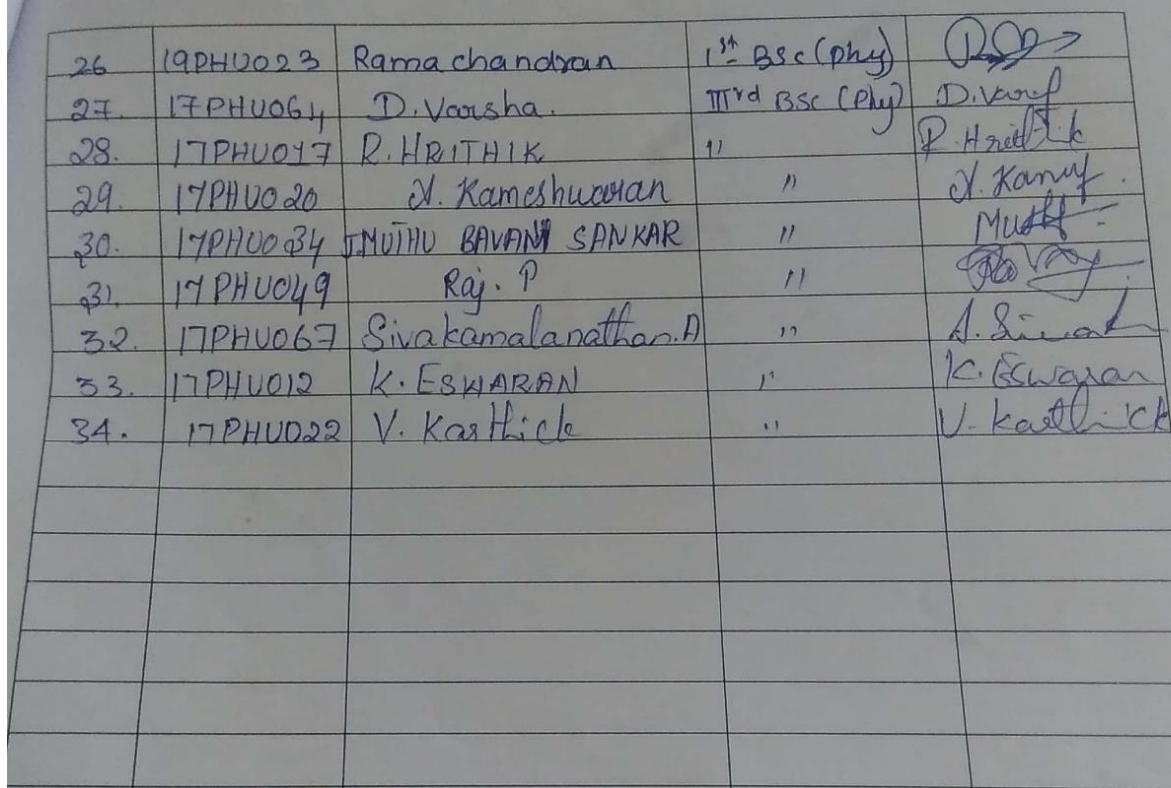 26 19PHU023 Ramachandran 1st BSc (phy)
27. 17PHU064 D. Varsha. IIIrd BSC (Phy) D. Varsh
28. 17PHU017 R. HRITHIK " R. Hrithik
29. 17PHU020 Kameshwaran "
30. 17PHU034 MUTHU BAVANI SANKAR "
31. 17PHU049 Raj. P "
32. 17PHU067 Sivakamalanathan.A "
33. 17PHU012 K. ESWARAN " K. Eswaran
34. 17PHU022 V. Karthick " V. Karthick